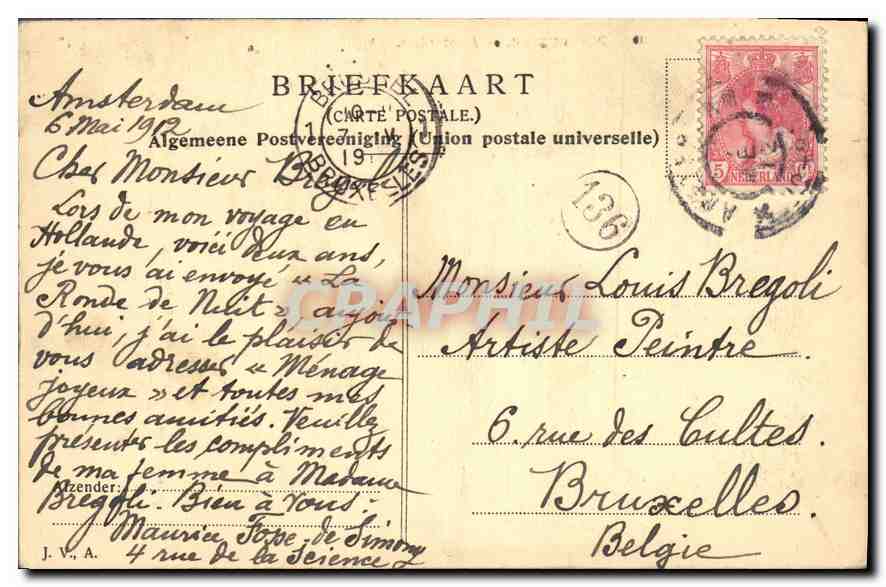 BRIEFKAART
(CARTE POSTALE.)
Algemeene Postvereeniging (Union postale universelle)
Amsterdam
6 Mai 1912
Cher Monsieur Bregoli
Lors de mon voyage en
Hollande, voici deux ans,
je vous ai envoyé "La
Ronde de Nuit", aujour-
d'hui, j'ai le plaisir de
vous adresser "Ménage
joyeux" et toutes mes
bonnes amitiés. Veuillez
présenter les compliments
de ma femme à Madame
Afzender:
Bregoli. Bien à vous.
Maurice de Simony
4 rue de la Science
J. V., A.
BRUXELLES
136
5
NEDERLAND
Monsieur Louis Bregoli
Artiste Peintre.
6. rue des Cultes.
Bruxelles.
Belgie
CPAPHIL